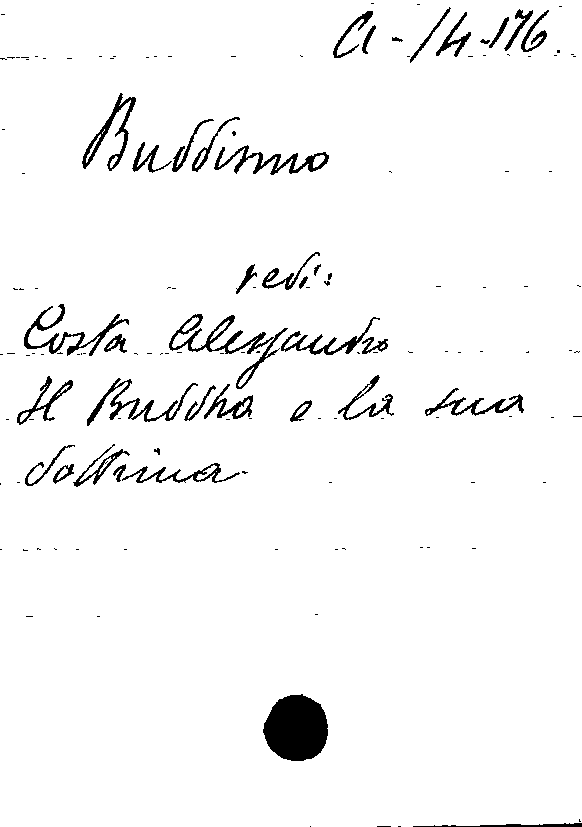 A-14-176.
Buddismo
vedi:
Costa Alessandro
Il Buddha e la sua
dottrina